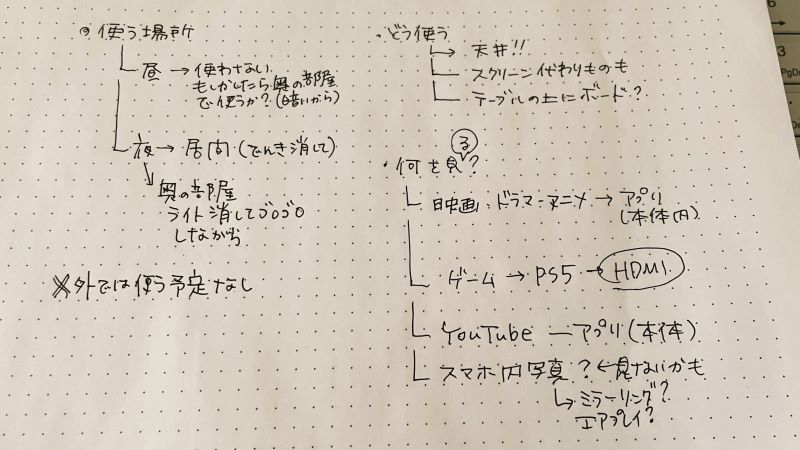 使う場所
昼 → 使わない
もしかしたら奥の部屋
で使うか?(暗いから)
夜 → 居間(でんき消して)
奥の部屋
ライト消してゴロゴロ
しながら
※外では使う予定なし
・どう使う
天井!!
スクリーン代わりものも
テーブルの上にボード?
・何を見る?
映画・ドラマ・アニメ → アプリ
(本体内)
ゲーム → PS5 → HDMI
YouTube — アプリ(本体)
スマホ内写真? ← 見ないかも
ミラーリング?
エアプレイ?
3
PgDn